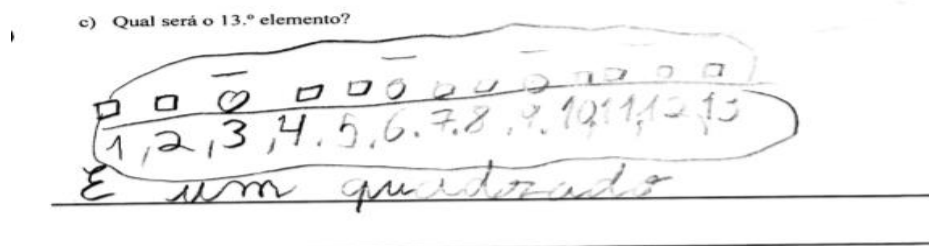 c) Qual será o 13.º elemento?
1, 2, 3, 4. 5, 6. 7. 8, 9. 10, 11, 12, 13
É um quadrado